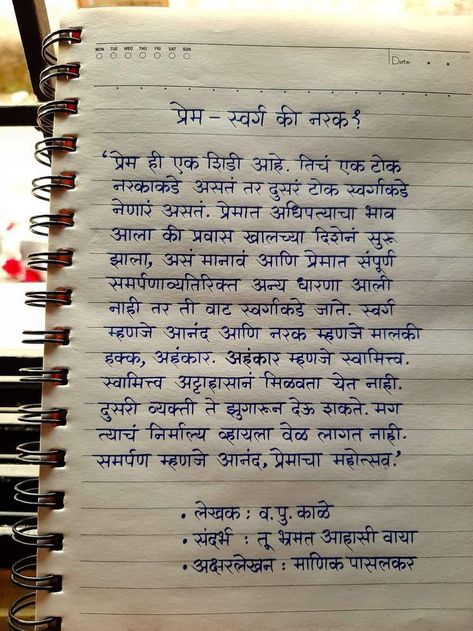 MON TUE WED THU FRI SAT SUN
Date:
प्रेम – स्वर्ग की नरक?
'प्रेम ही एक शिडी आहे. तिचं एक टोक
नरकाकडे असतं तर दुसरं टोक स्वर्गाकडे
नेणारं असतं. प्रेमात अधिपत्याचा भाव
आला की प्रवास खालच्या दिशेनं सुरू
झाला, असं मानावं आणि प्रेमात संपूर्ण
समर्पणाव्यतिरिक्त अन्य धारणा आली
नाही तर ती वाट स्वर्गाकडे जाते. स्वर्ग
म्हणजे आनंद आणि नरक म्हणजे मालकी
हक्क, अहंकार. अहंकार म्हणजे स्वामित्त्व.
स्वामित्त्व अट्टाहासानं मिळवता येत नाही.
दुसरी व्यक्ती ते झुगारून देऊ शकते. मग
त्याचं निर्माल्य व्हायला वेळ लागत नाही.
समर्पण म्हणजे आनंद, प्रेमाचा महोत्सव.'
• लेखक : व. पु. काळे
• संदर्भ : तू भ्रमत आहासी वाया
• अक्षरलेखन : माणिक पासलकर